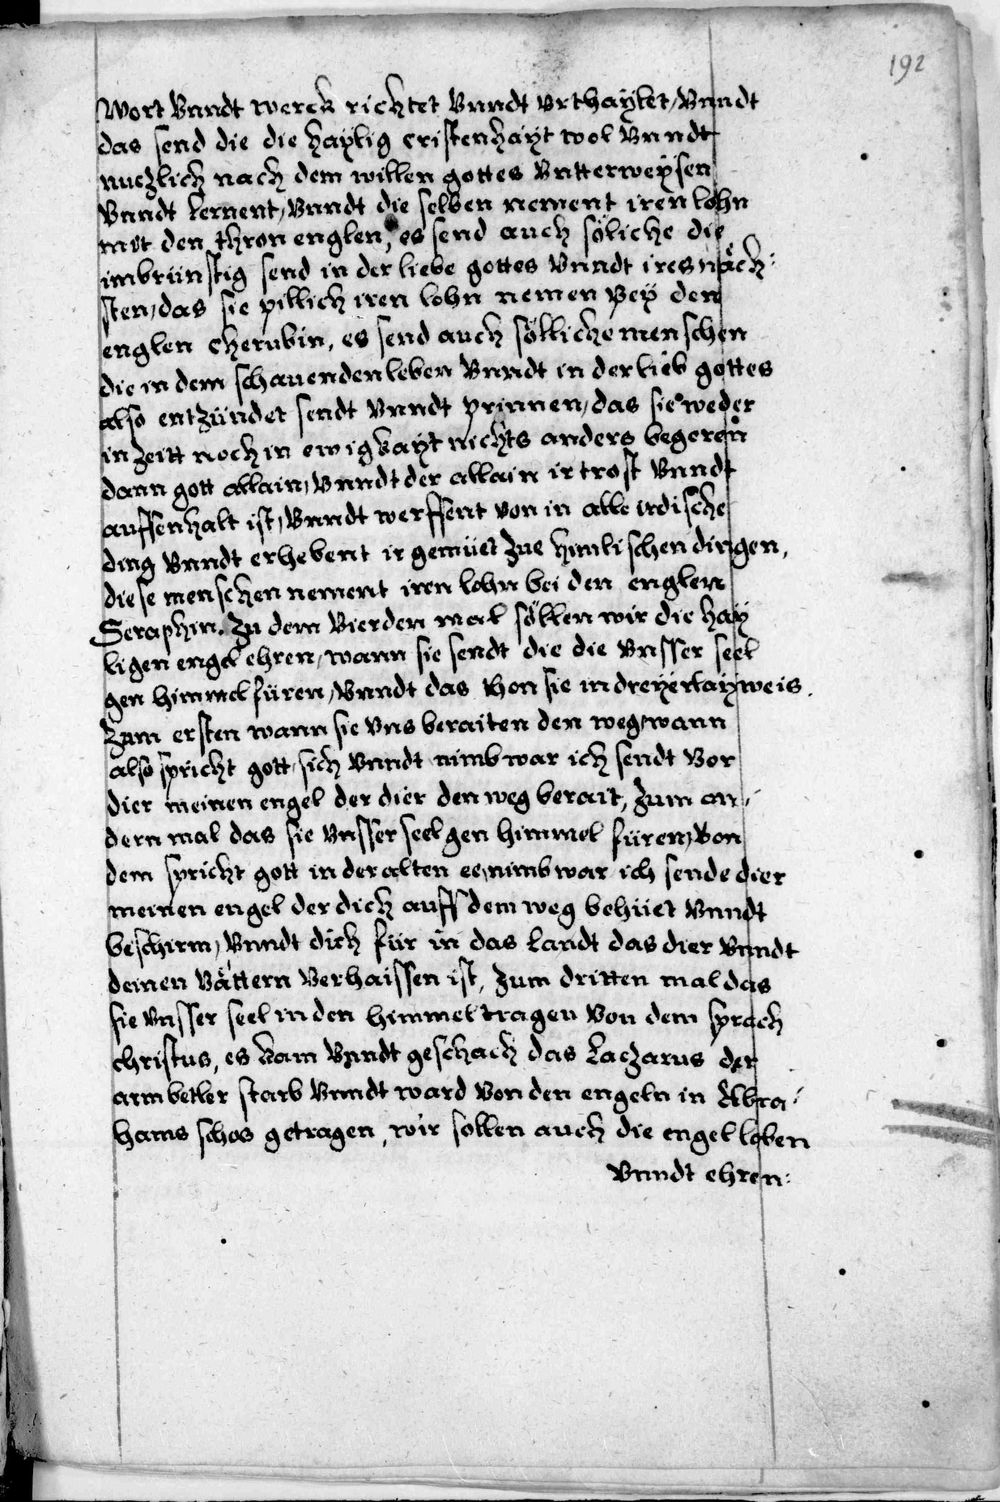 192
Wort Vnndt werck richtet Vnndt vrthaylet, Vnndt
das send die die haylig cristenhayt wol Vnndt
nuczlich nach dem willen gottes Vntterweysen
Vnndt lernent, Vnndt die selben nement iren lohn
mit den thron englen, es send auch söliche die
imbrünstig send in der liebe gottes Vnndt ires näch:
sten, das sie pillich iren lohn nemen pey den
englen cherubin, es send auch söllich menschen
die in dem schauenden leben Vnndt in der lieb gottes
also entzündet sendt Vnndt prinnen, das sie weder
in zeitt noch in ewigkayt nichts anders begeren
dann gott allain, Vnndt der allain ir trost Vnndt
auffenhalt ist, Vnndt werffent von in alle irdische
ding Vnndt erhebent ir gemüet zue himlischen dingen,
diese menschen nement iren lohn bei den englen
Seraphin. Zu dem Vierden mal söllen wir die hay
ligen engel ehren, wann sie sendt die die Vnsser seel
gen himmel füren, Vnndt das thon sie in dreyerlay weis.
Zum ersten wann sie vns beraiten den weg, wann
also spricht gott, sich Vnndt nimb war ich sendt Vor
dier meinen engel der dier den weg berait, Zum an:
dern mal das sie Vnsser seel gen himmel füren, Von
dem spricht gott in der alten ee, nimb war ich sende dier
meinen engel der dich auff dem weg behüet Vnndt
beschirm, Vnndt dich für in das landt das dier Vnndt
deinen Vättern Verhaissen ist, Zum dritten mal das
sie Vnsser seel in den himmel tragen Von dem sprach
christus, es kam Vnndt geschach das Laczarus der
arm betler starb Vnndt ward Von den engeln in Abra:
hams schos getragen, wir sollen auch die engel loben
Vnndt ehren: